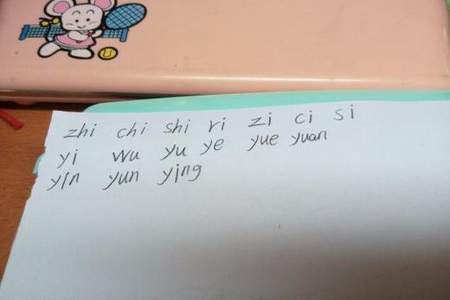 zhi chi shi ri zi ci si
yi wu yu ye yue yuan
yin yun ying